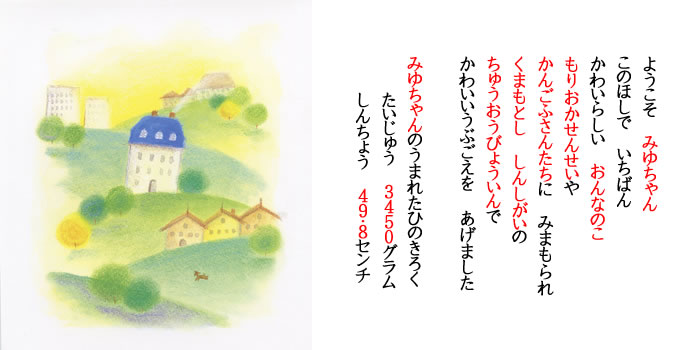 ようこそ　みゆちゃん
このほしで　いちばん
かわいらしい　おんなのこ
もりおかせんせいや
かんごふさんたちに　みまもられ
くまもとし　しんしがいの
ちゅうおうびょういんで
かわいいうぶごえを　あげました
みゆちゃんのうまれたひのきろく
たいじゅう　3450グラム
しんちょう　49・8センチ